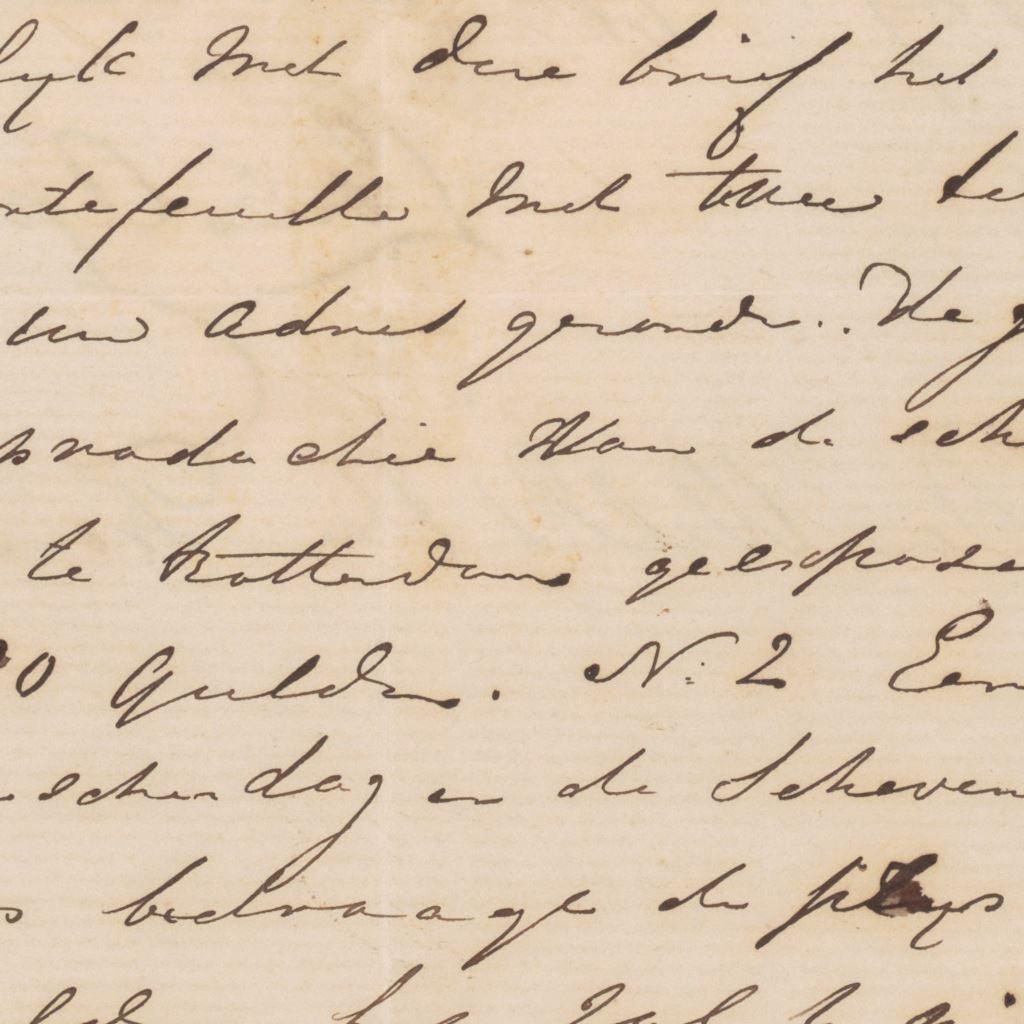 lyk met deze brief het
ortefeuille met twee te
uw adres gezonde.. De g
die van de sch
te Rotterdam geexpose
0 Gulden. N: 2 Een
schendag en de Scheven
bedraage de prys